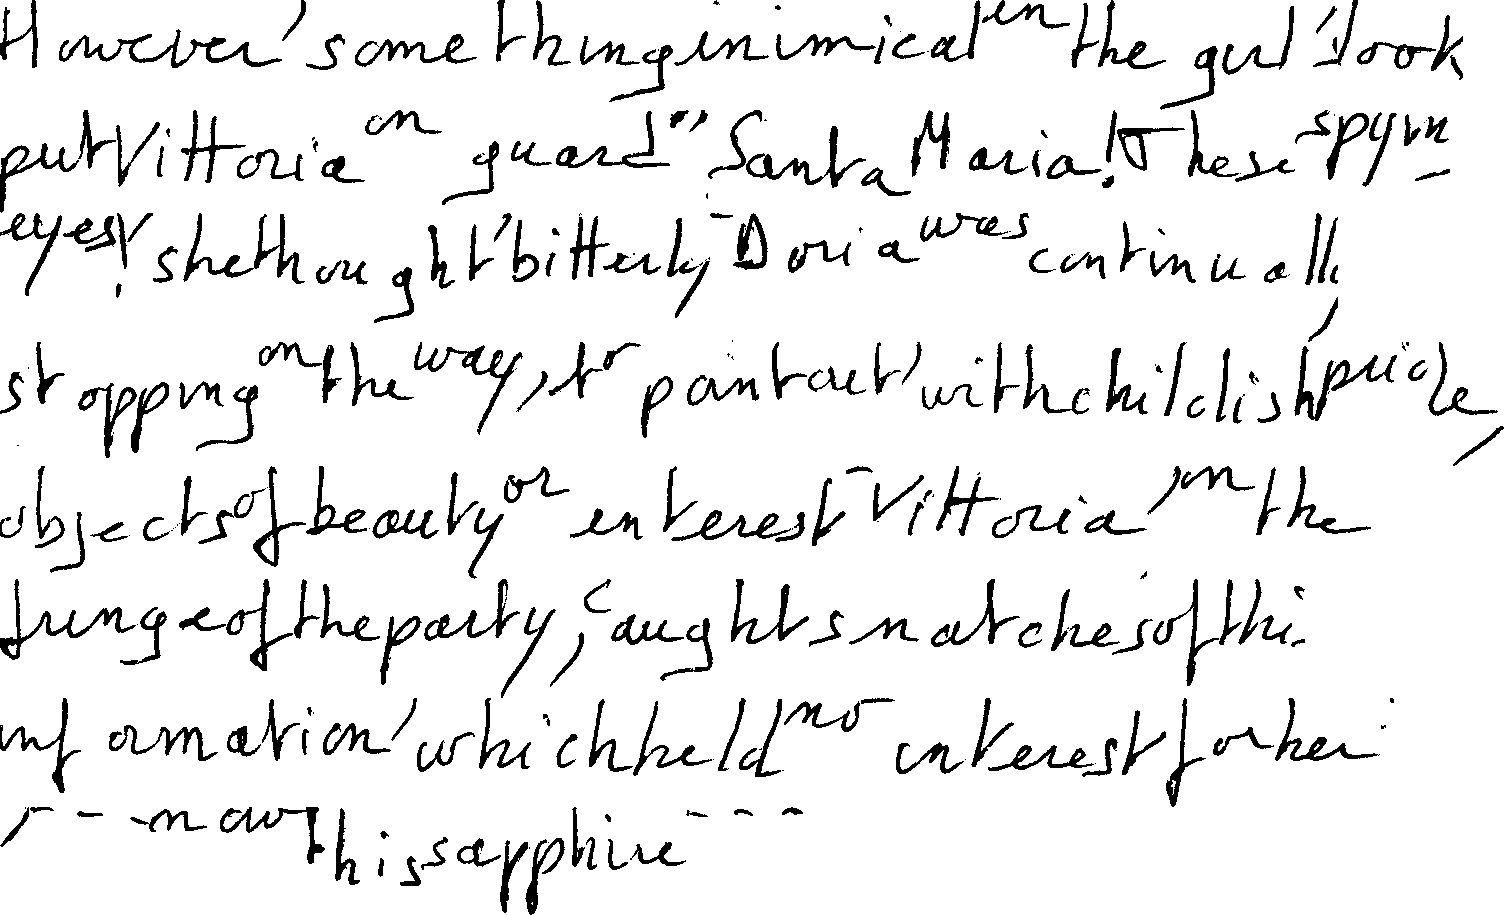 However, something inimical in the girl's look
put Vittoria on guard. "Santa Maria! These spying
eyes!", she thought bitterly. Doria was continually
stopping on the way, to point out, with childish pride,
objects of beauty or interest. Vittoria, on the
fringe of the party, caught snatches of this
information, which held no interest for her.
, - - - now this sapphire - - -